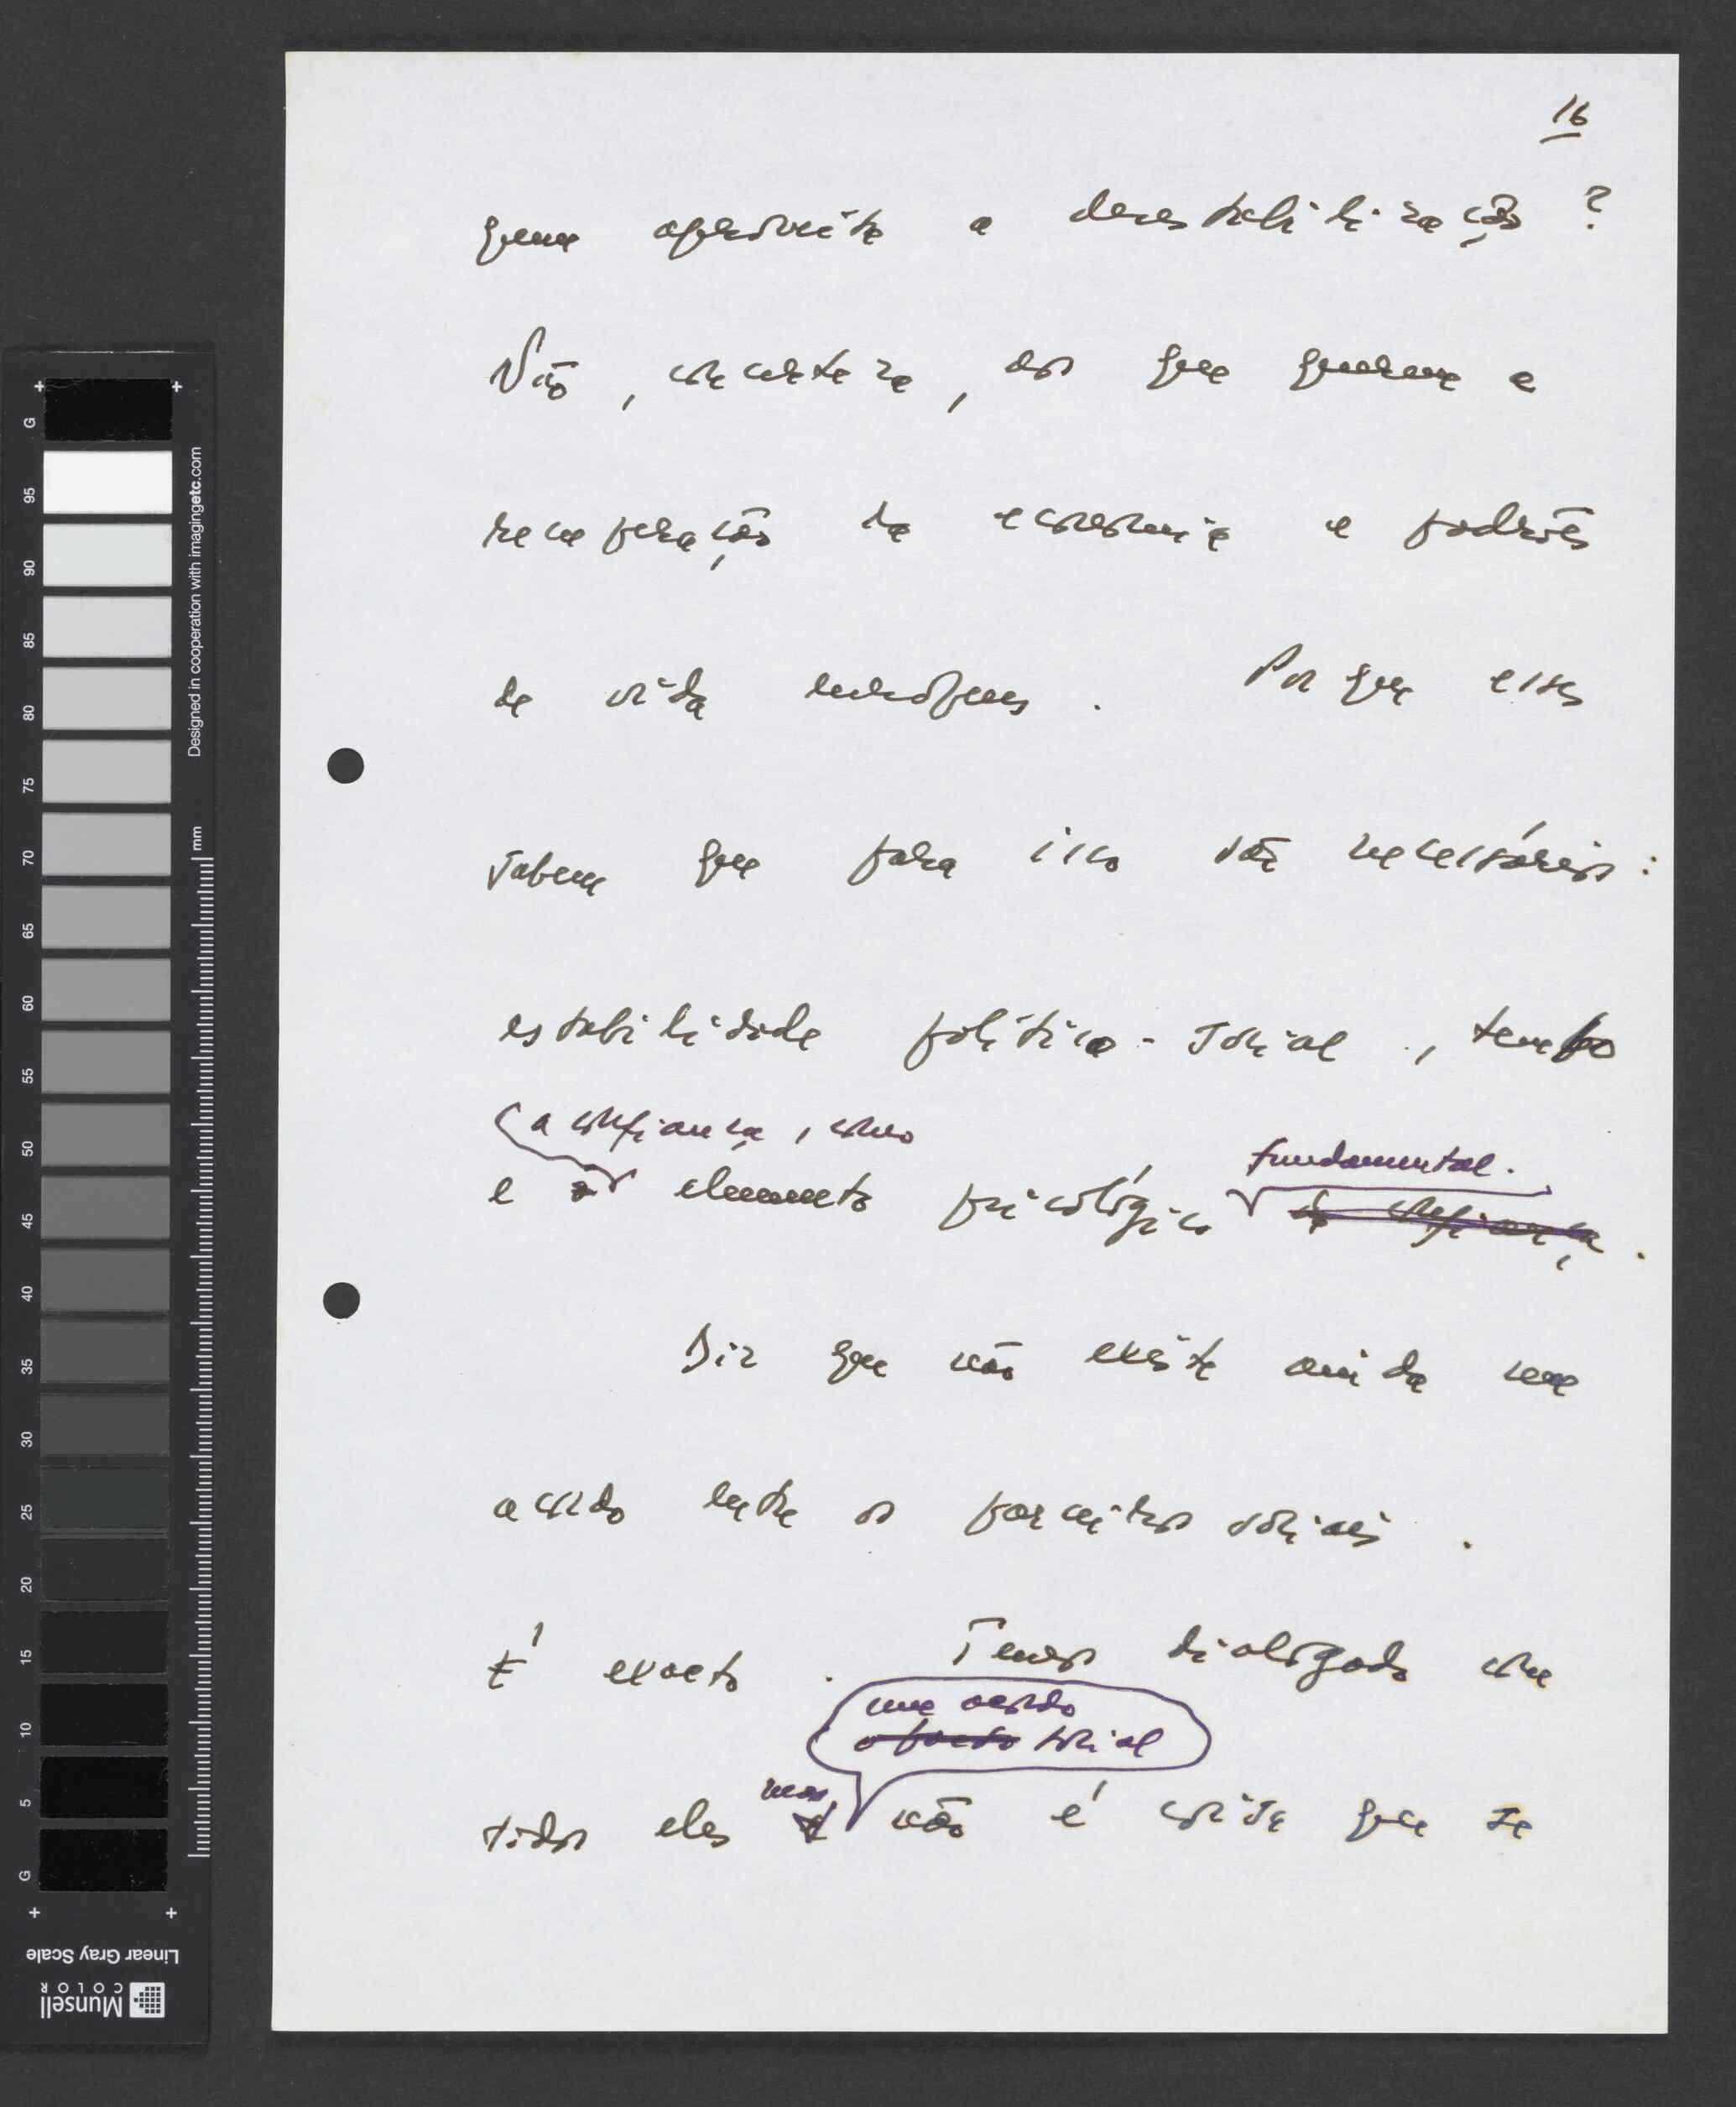 16
quem aproveita a desestabilização ?
Não, com certeza, aos que querem a
recuperação da economia e padrões
de vida europeus . Porque esses
sabem que para isso são necessários :
estabilidade político-social , tempo
a confiança , como
e o elemento psicológico fundamental.
da confiança .
Diz que não existe ainda um
acordo entre os parceiros sociais .
É exacto . Temos dialogado com
um acordo
o pacto social
todos eles mas não é coisa que se
G 95 90 85 80 75 70 65 60 55 50 45 40 35 30 25 20 15 10 5 G
Designed in cooperation with imagingetc.com
mm
Linear Gray Scale
Munsell
COLOR